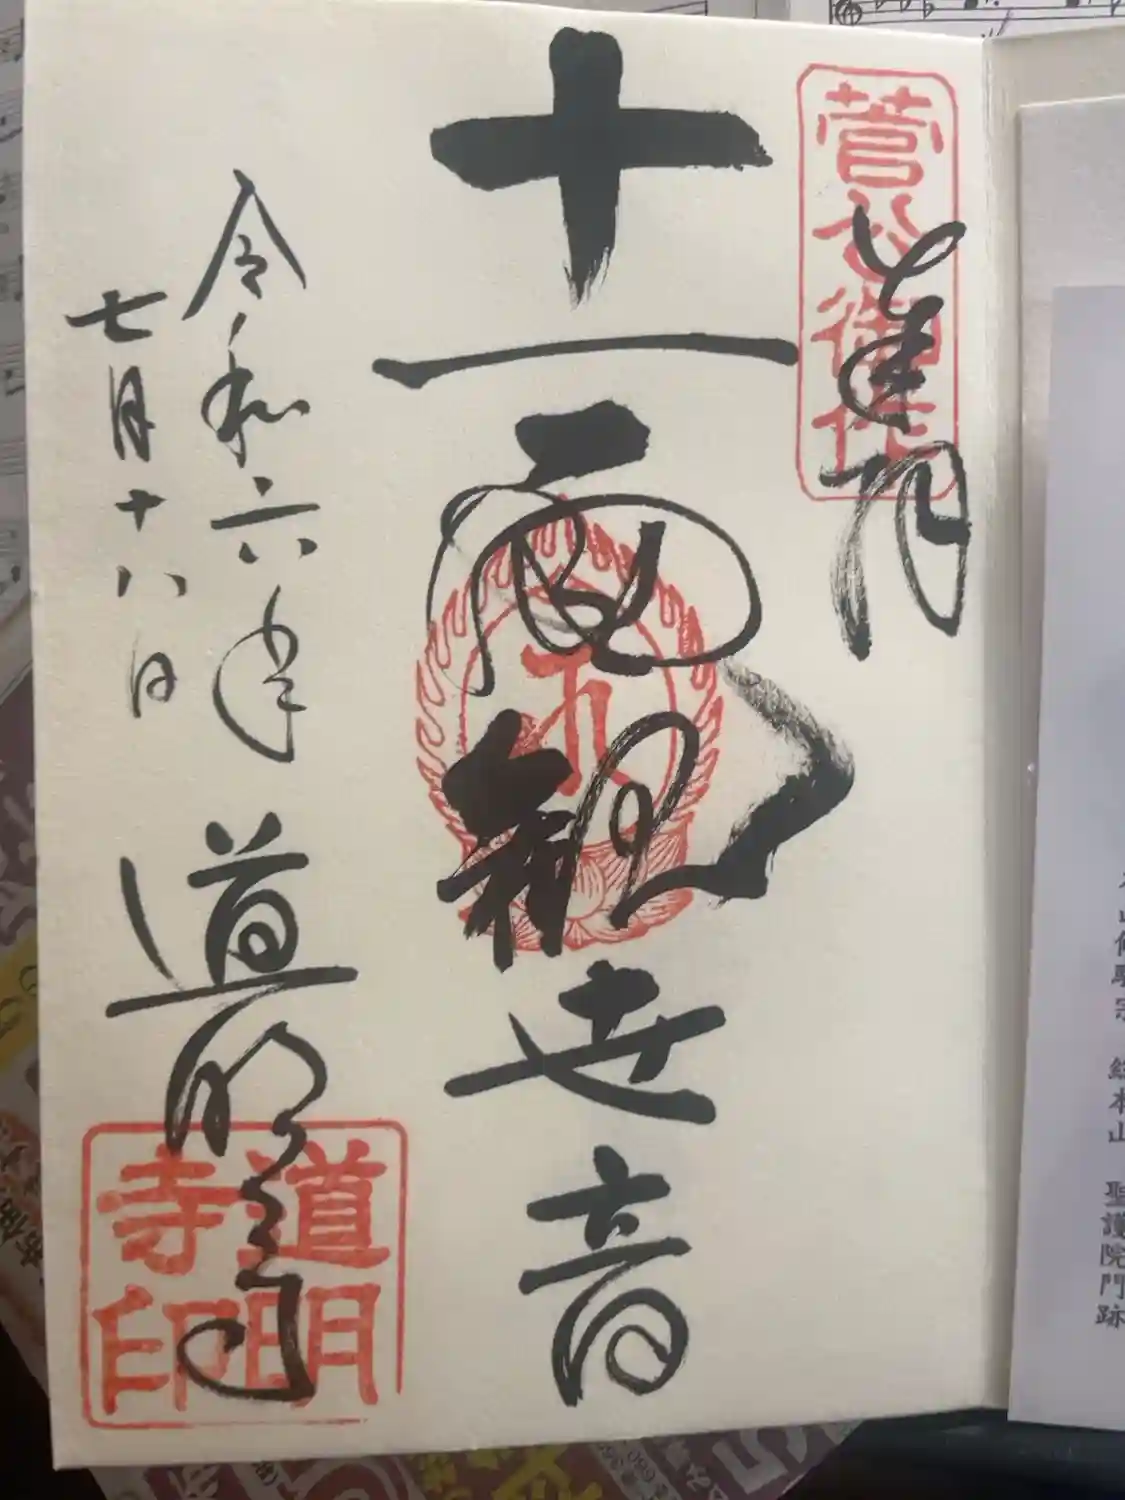 奉拝
菅公御作
十一面観世音
令和六年
七月十八日
道明寺
道明
寺印
総本山 聖護院門跡